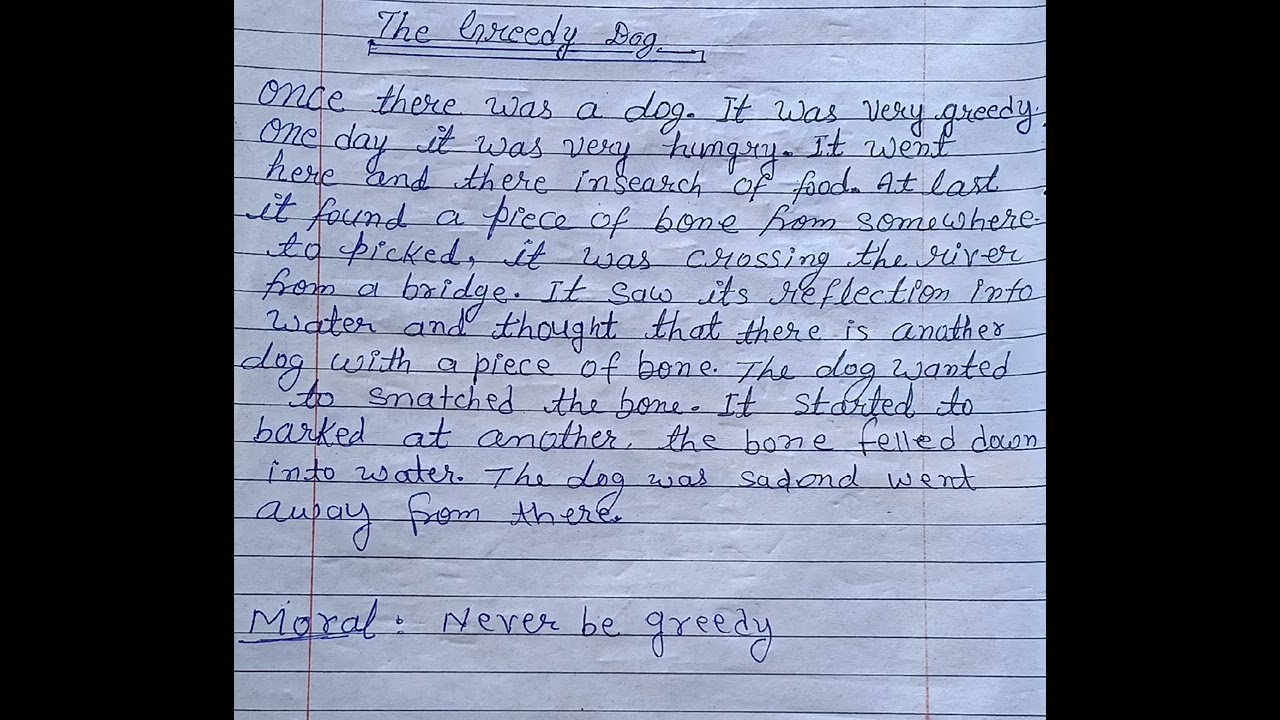 The Greedy Dog
once there was a dog. It was very greedy.
One day it was very hungry. It went
here and there insearch of food. At last
it found a piece of bone from somewhere.
to picked, it was crossing the river
from a bridge. It saw its reflection into
water and thought that there is another
dog with a piece of bone. The dog wanted
to snatched the bone. It started to
barked at another, the bone felled down
into water. The dog was sad and went
away from there.
Moral: Never be greedy